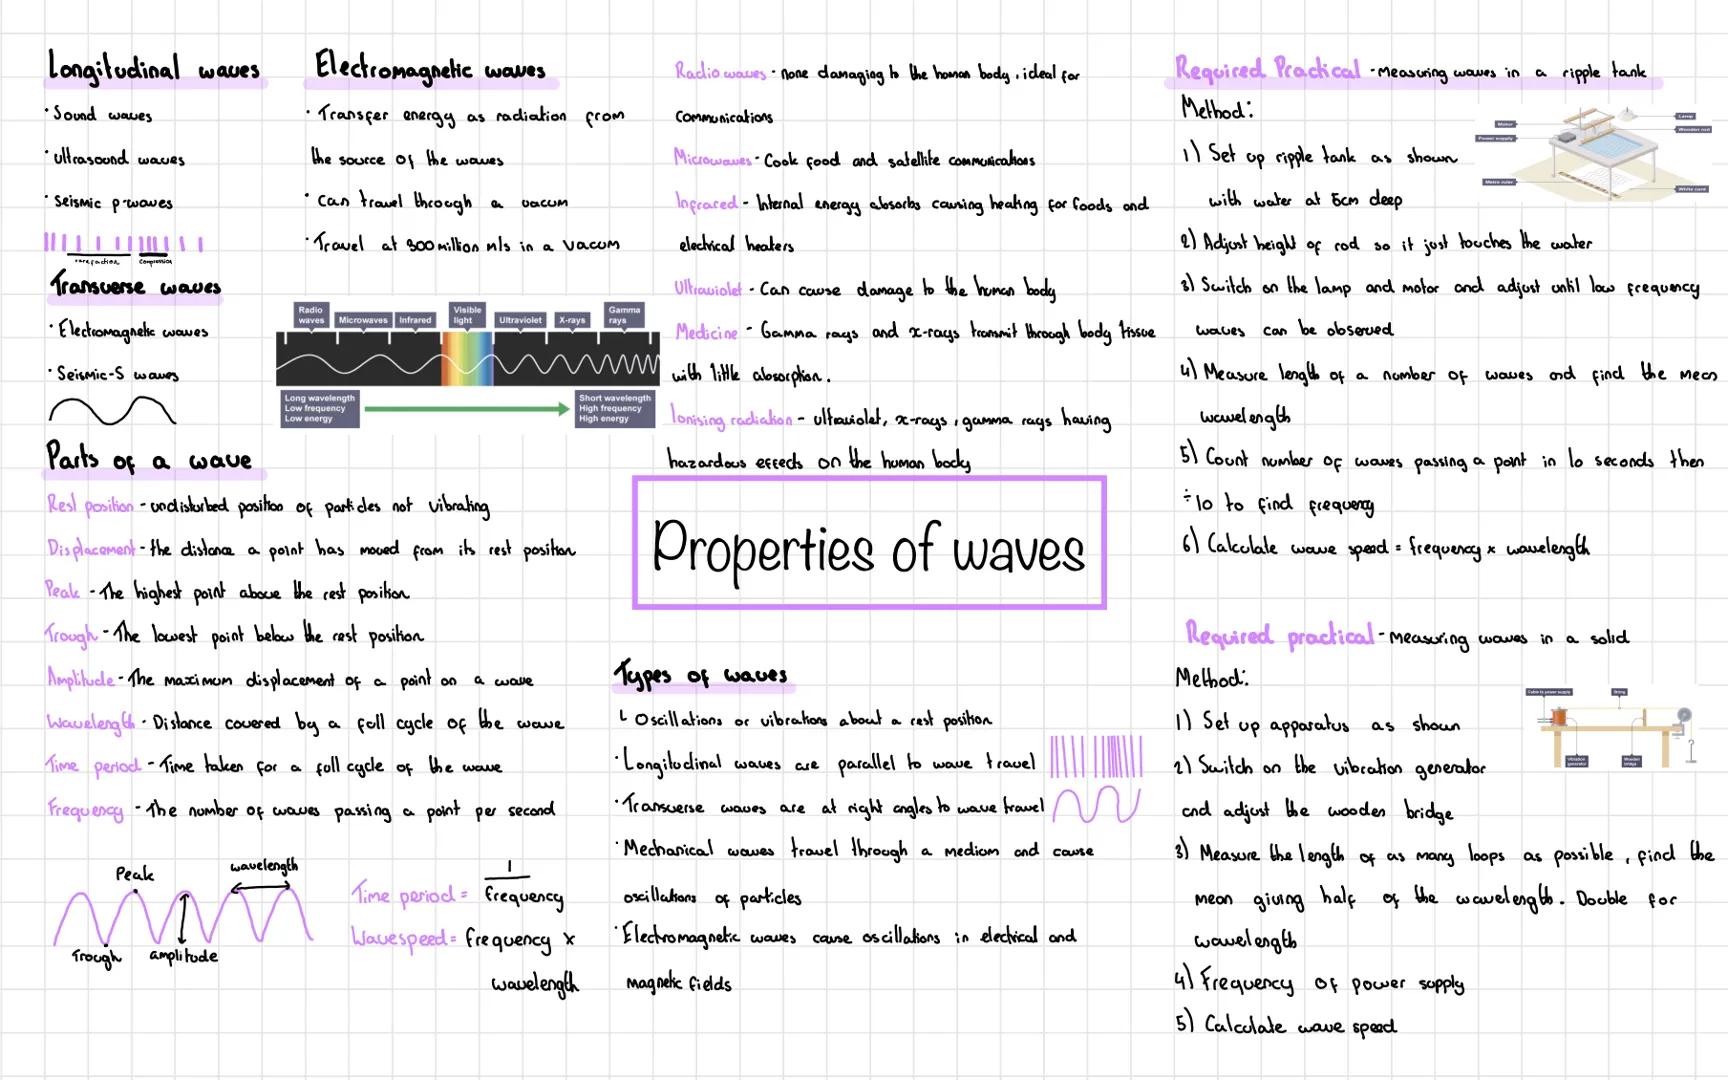 Longitudinal waves
· Sound waves
· ultrasound waves
· Seismic p-waves
rarefaction compression
Transverse waves
· Electromagnetic waves
· Seismic-S waves
Electromagnetic waves
· Transfer energy as radiation from
the source of the waves
· Can travel through a vacum
· Travel at 300 million m/s in a vacum
Radio waves
Microwaves
Infrared
Visible light
Ultraviolet
X-rays
Gamma rays
Long wavelength
Low frequency
Low energy
Short wavelength
High frequency
High energy
Parts of a wave
Rest position - undisturbed position of particles not vibrating
Displacement - the distance a point has moved from its rest position
Peak - The highest point above the rest position
Trough - The lowest point below the rest position
Amplitude - The maximum displacement of a point on a wave
Wavelength - Distance covered by a full cycle of the wave
Time period - Time taken for a full cycle of the wave
Frequency - The number of waves passing a point per second
Peak
wavelength
Trough
amplitude
Time period = 1
frequency
Wavespeed = frequency x
wavelength
Radio waves - none damaging to the human body, ideal for
communications
Microwaves - Cook food and satellite communications
Infrared - Internal energy absorbs causing heating for foods and
electrical heaters
Ultraviolet - Can cause damage to the human body
Medicine - Gamma rays and x-rays transmit through body tissue
with little absorption.
Ionising radiation - ultraviolet, x-rays, gamma rays having
hazardous effects on the human body
Properties of waves
Types of waves
Oscillations or vibrations about a rest position
· Longitudinal waves are parallel to wave travel
· Transverse waves are at right angles to wave travel
· Mechanical waves travel through a medium and cause
oscillations of particles
· Electromagnetic waves cause oscillations in electrical and
magnetic fields
Required Practical - measuring waves in a ripple tank
Method:
1) Set up ripple tank as shown
with water at 5cm deep
2) Adjust height of rod so it just touches the water
3) Switch on the lamp and motor and adjust until low frequency
waves can be observed
4) Measure length of a number of waves and find the mean
wavelength
5) Count number of waves passing a point in 10 seconds then
÷10 to find frequency
6) Calculate wave speed = frequency x wavelength
Motor
Power supply
Metre ruler
Lamp
Wooden rod
White card
Required practical - measuring waves in a solid
Method:
1) Set up apparatus as shown
2) Switch on the vibration generator
and adjust the wooden bridge
3) Measure the length of as many loops as possible, find the
mean giving half of the wavelength. Double for
wavelength
4) Frequency of power supply
5) Calculate wave speed
Cable to power supply
String
Vibration generator
Wooden bridge